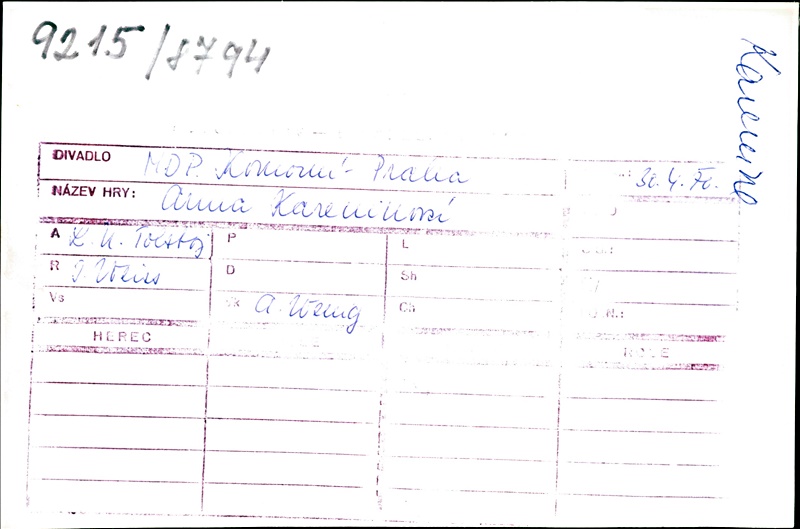 9215/8794
Karenina
DIVADLO MDP. Komorní - Praha 30.4.70.
NÁZEV HRY: Anna Kareninová
A L. N. Tolstoj P L
R J. Weiss D Sh
Vs Vk A. Wenig Ch
HEREC ROLE